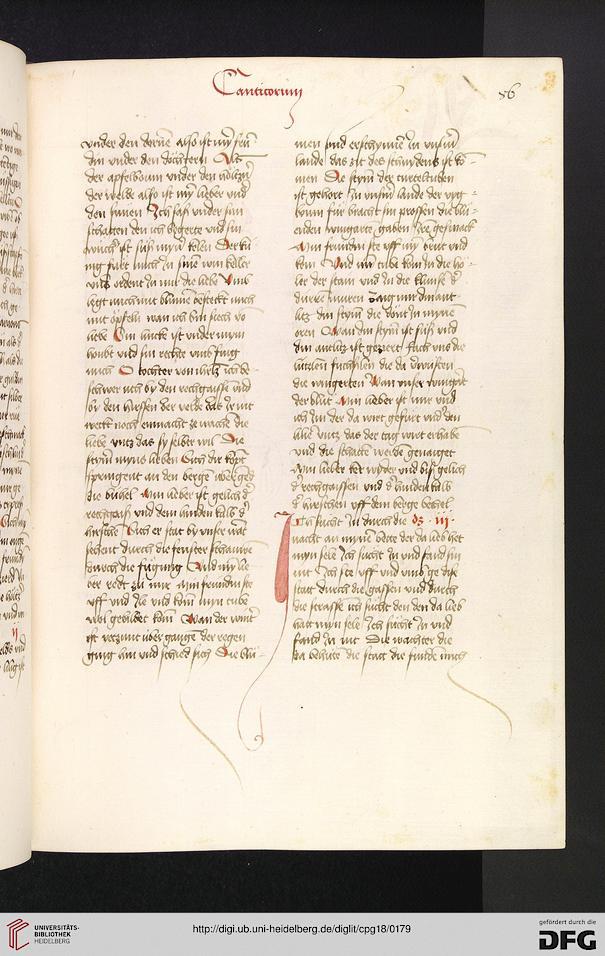 Canticorum
86
vnder den dornen also ist myn frun
din vnder den dochtern Als
der apfelboum vnder den höltzern
der welde also ist myn lieber vnder
den sunen Ich sass vnder sim
schatten den ich begerte vnd sin
frucht ist süss myner kelen Der kü
nig furt mich in sinen win keller
vnd ordent in mir die liebe Vmb
legt mich mit blumen bestecket mich
mit öpfeln wan ich bin siech vor
liebe Sin lincke ist vnder mym
houbt vnd sin rechte vmbfing
mich O tochter von iherusalem ich be
schwer uch by den rechgaissen vnd
by den hirssen der velde das ir nit
weckt noch erwachet ze wache die
liebe vntz das sy selber wil Die
stym myns lieben Sich der kompt
springent an den bergen vbergend
die bühel Myn lieber ist gelich der
rechgaiss vnd dem hinden kalb der
hirsche Sich er stat by vnser want
sehent durch die fenster schauwent
durch die fugung Vnd myn lie
ber redt zu mir Myn frundin ste
vff vnd ile vnd kom myn tube
wol gebildet kom Wan der winter
ist yetzunt vbergangen der regen
ging hin vnd schied sich Die blu
men sind erschynnen in vnserm
lande das zit des schnydens ist ko
men Die stym der turteltuben
ist gehört in vnserm lande der vyg
boum fur bracht sin prossen die blü
enden wingarten gaben iren gesmack
Myn frundin ste vff myn brut vnd
kom Vnd myn tube kom in die hö
ler der stain vnd in die klunse der
durren muren Zaig mir din ant
litz din stym die dön in mynen
oren Wan din stym ist süss vnd
din antlitz ist gezieret Fach vns die
lutzeln fuchslin die da verwüsten
die wingerten Wan vnser wingart
der blüt Myn lieber ist mir vnd
ich im der da wirt gefurt vnder den
lilien vntz das der tag wirt erhaben
vnd die schatten werden genaiget
Myn lieber ker wyder vnd biss gelich
der rechgaissen vnd der hinden kalb
der hirschen vff dem berge bethel
Ich sucht in durch die Das iii
nacht an mynem bette der da lieb het
myn sele Ich sucht in vnd fand sin
nit Ich ste vff vnd vmb ge dise
statt durch die gassen vnd durch
die strassen ich sucht den den da lieb
hatt myn sele Ich sucht in vnd
fand in nit Die wachter die
da behüten die statt die funden mich
UNIVERSITÄTS-
BIBLIOTHEK
HEIDELBERG
http://digi.ub.uni-heidelberg.de/diglit/cpg18/0179
gefördert durch die
DFG